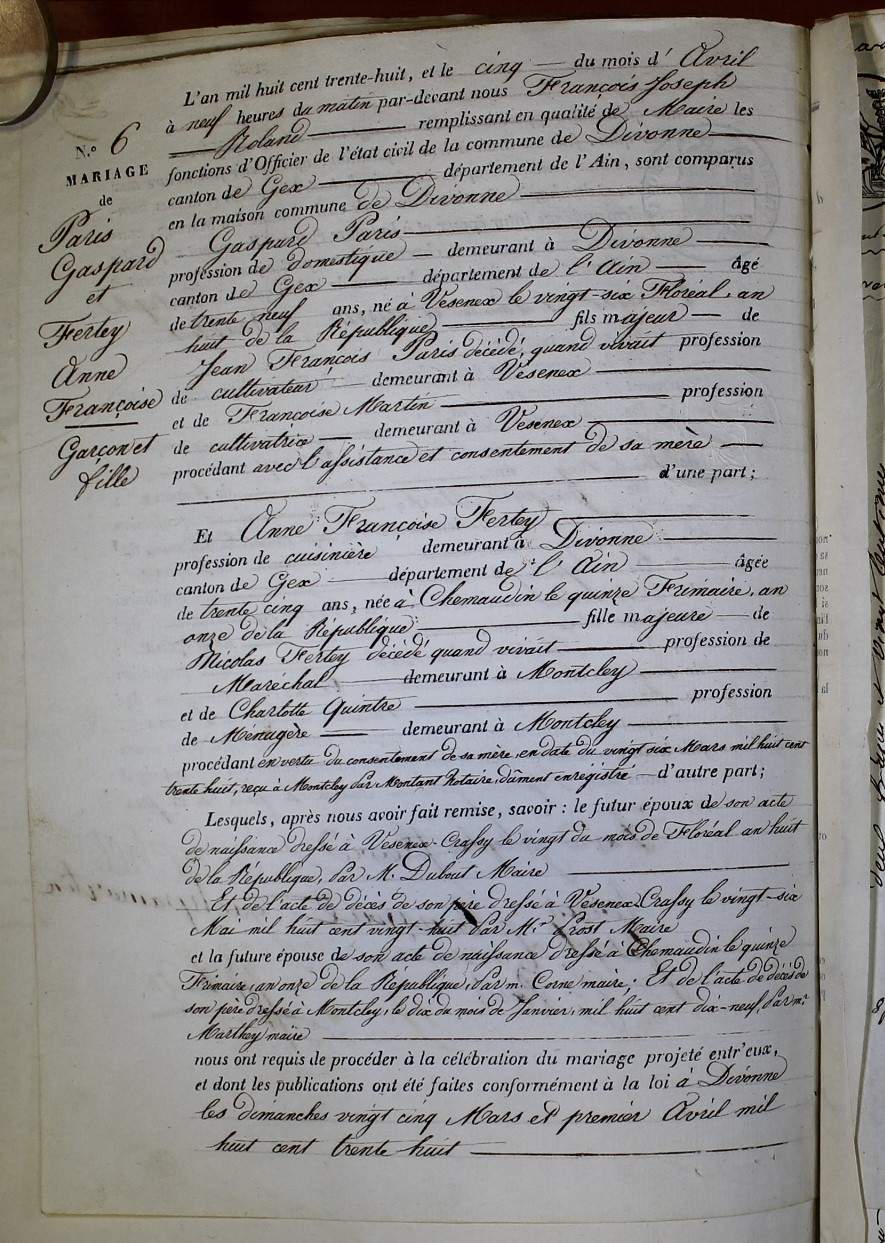 L'an mil huit cent trente-huit, et le cinq du mois d'Avril
à neuf heures du matin par-devant nous François Joseph
Roland remplissant en qualité de Maire les
fonctions d'Officier de l'état civil de la commune de Divonne
canton de Gex département de l'Ain, sont comparus
en la maison commune de Divonne
N.º 6
MARIAGE
de
Paris
Gaspard
et
Fertey
Anne
Françoise
Garçon et
fille
Gaspard Paris
profession de domestique demeurant à Divonne
canton de Gex département de l'Ain âgé
de trente neuf ans, né à Vesenex le vingt-six Floréal, an
huit de la République fils majeur de
Jean François Paris décédé, quand vivait profession
de cultivateur demeurant à Vésenex
et de Françoise Martin profession
de cultivatrice demeurant à Vesenex
procédant avec l'assistance et consentement de sa mère
d'une part;
Et Anne Françoise Fertey
profession de cuisinière demeurant à Divonne
canton de Gex département de l'Ain âgée
de trente cinq ans, née à Chemaudin le quinze Frimaire, an
onze de la République fille majeure de
Nicolas Fertey décédé quand vivait profession de
Maréchal demeurant à Montcley
et de Charlotte Quintre profession
de Ménagère demeurant à Montcley
procédant en vertu du consentement de sa mère, en date du vingt six Mars mil huit cent
trente huit, reçu à Montcley par Montant Notaire, dûment enregistré d'autre part;
Lesquels, après nous avoir fait remise, savoir: le futur époux de son acte
de naissance dressé à Vesenex-Crassy le vingt du mois de Floréal an huit
de la République, par M. Dubout Maire
Et de l'acte de décès de son père dressé à Vésenex Crassy le vingt-six
Mai mil huit cent vingt-huit par Mr Prost Maire
et la future épouse de son acte de naissance dressé à Chemaudin le quinze
Frimaire, an onze de la République, par m. Corne maire; Et de l'acte de décès de
son père dressé à Montcley, le dix du mois de Janvier, mil huit cent dix-neuf, par mr
Marthey maire
nous ont requis de procéder à la célébration du mariage projeté entr'eux,
et dont les publications ont été faites conformément à la loi à Divonne
les dimanches vingt cinq Mars et premier Avril mil
huit cent trente huit